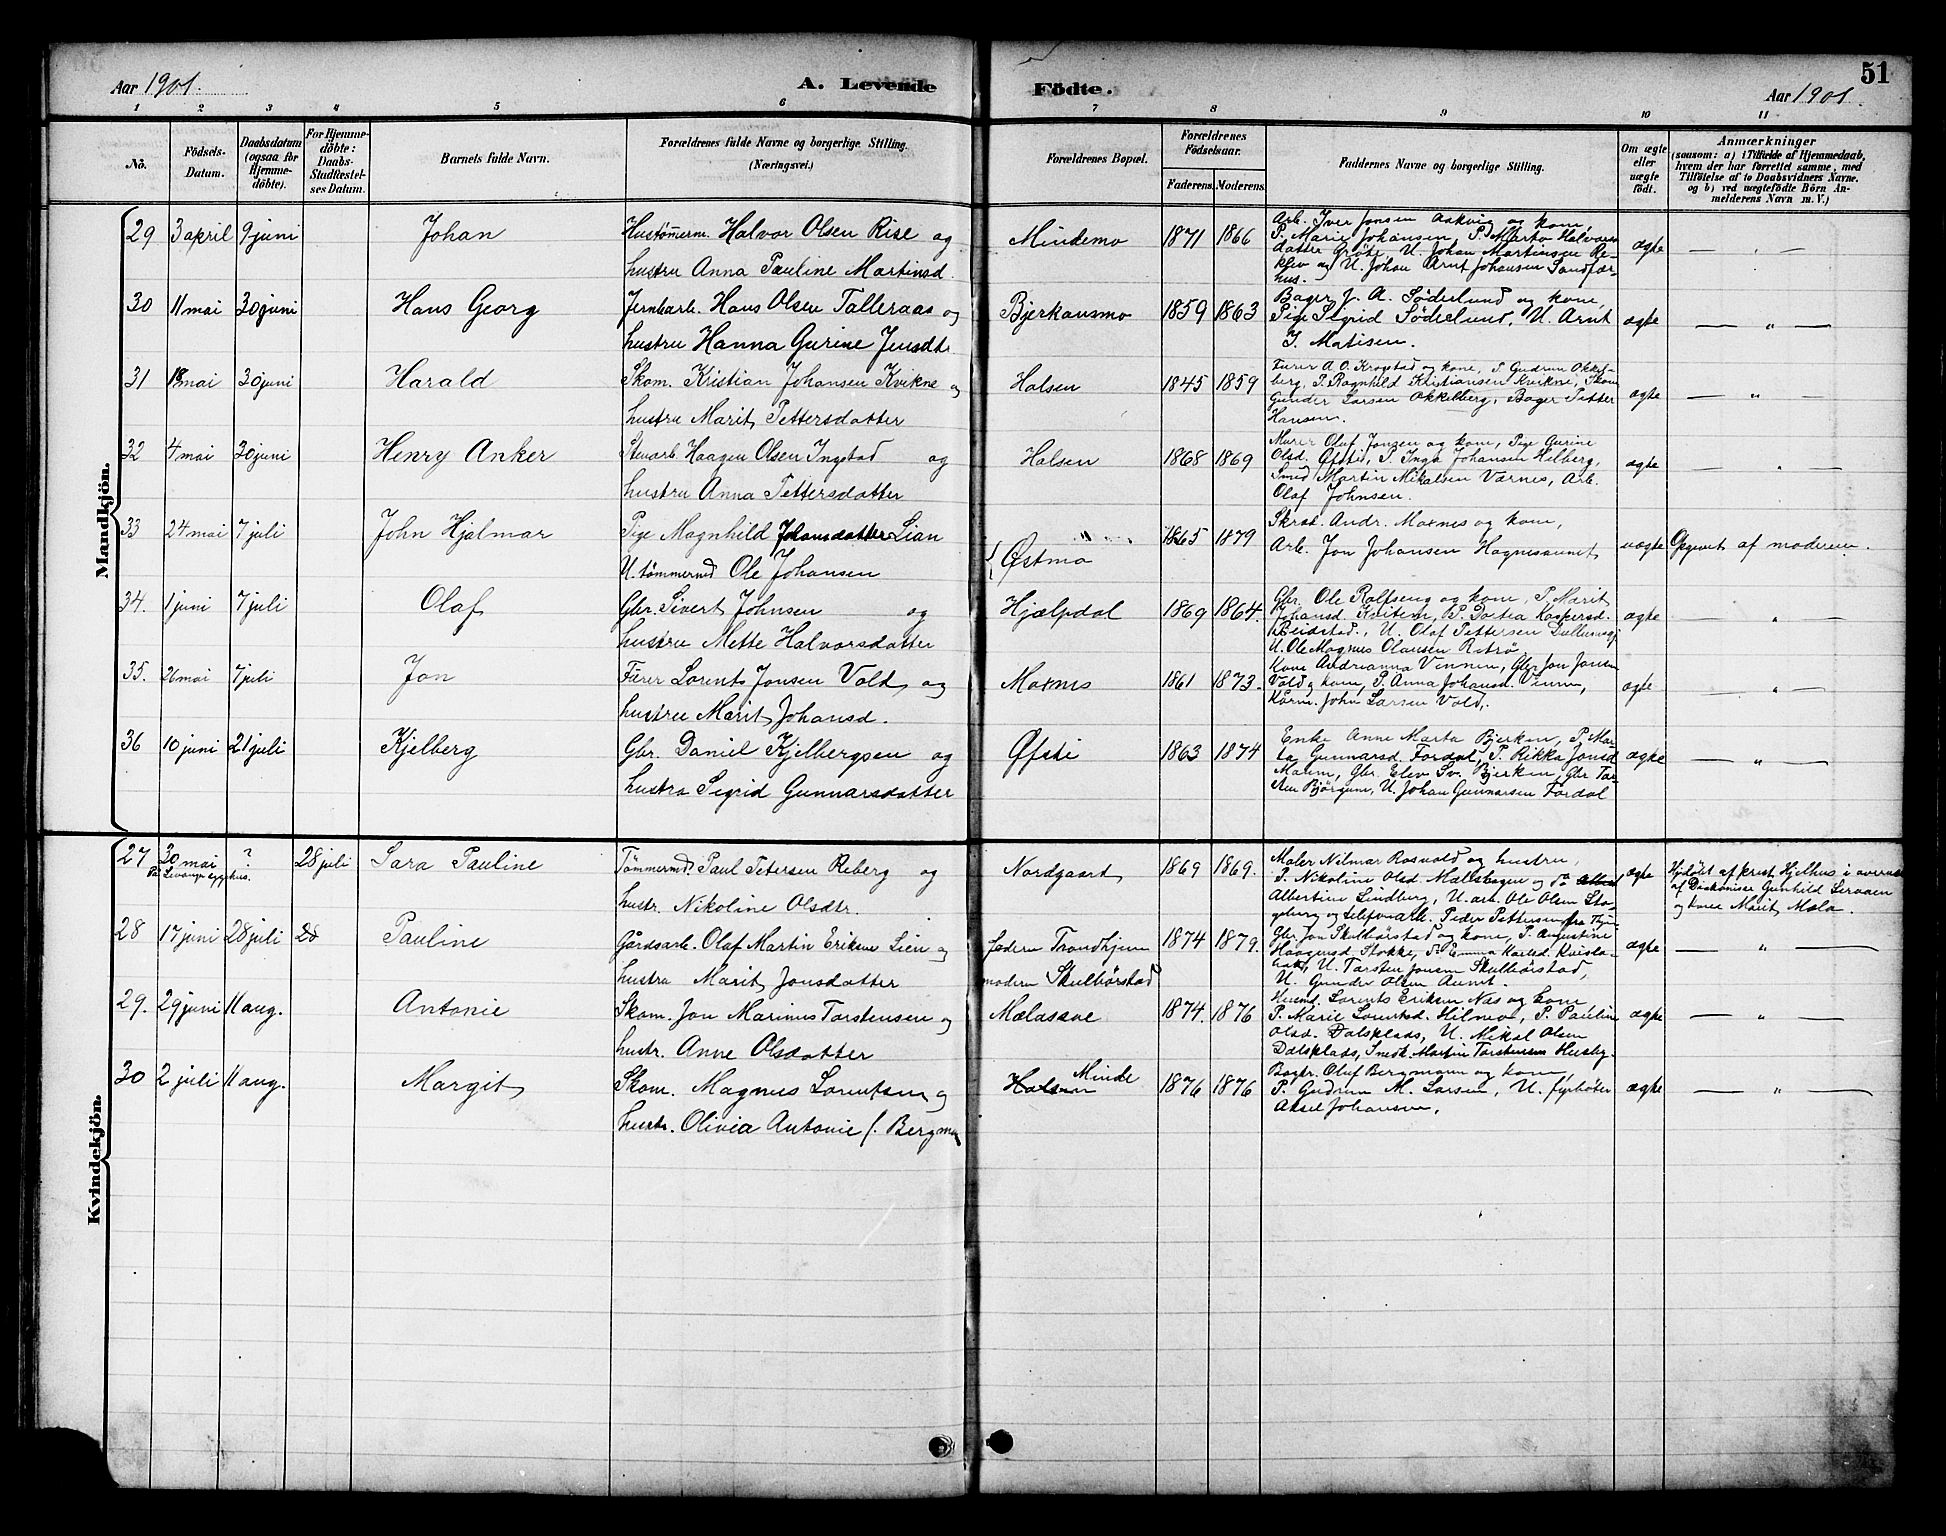 51
Aar 1901.
A. Levende
Födte.
Aar 1901.
1 2 3 4 5 6 7 8 9 10 11
Nō.
Födsels-Datum.
Daabsdatum (ogsaa for Hjemmedöbte).
For Hjemmedöbte: Daabs-Stadfæstelses Datum.
Barnets fulde Navn.
Forældrenes fulde Navne og borgerlige Stilling.
(Næringsvei.)
Forældrenes Bopæl.
Forældrenes Födselsaar.
Faderens. Moderens.
Faddernes Navne og borgerlige Stilling.
Om ægte eller uægte födt.
Anmærkninger
(saasom: a) i Tilfælde af Hjemmedaab,
hvem der har forrettet samme, med
Tilföielse af to Daabsvidners Navne,
og b) ved uægtefödte Börn An-
melderens Navn m. V.)
Mandkjön.
29 3 april 9 juni Johan
Hustömerm. Halvor Olsen Rise og
hustru Anna Pauline Martinsd.
Mindemo 1871 1866
Arb. Iver Jonsen Aakvig og kone,
P. Marie Johansen, P. Marta Halvors
datter Gröte, U. Johan Martinsen Re-
klev og U. Johan Arnt Johansen Sandfær-
hus.
ægte
30 11 mai 30 juni Hans Georg
Jernbarb. Hans Olsen Talleraas og
hustru Hanna Gurine Jensdtr.
Bjerkansmo 1859 1863
Bager J. A. Söderlund og kone,
Pige Sigrid Söderlund, U. Arnt
J. Matisen.
ægte
31 18 mai 30 juni Harald
Skom. Kristian Johansen Kvikne og
hustru Marit Pettersdatter
Halsen 1845 1859
Furer A. O. Krogstad og kone, P. Gudrun Okkel-
berg, P. Ragnhild Kristiansen Kvikne, Skom
Gunder Larsen Okkelberg, Bager Petter
Hansen.
ægte
32 4 mai 30 juni Henry Anker
Stuarb. Haagen Olsen Ingstad og
hustru Anna Pettersdatter
Halsen 1868 1869
Murer Oluf Jonsen og kone, Pige Gurine
Olsd. Øfsti, P. Inga Johansen Hilberg,
Smed Martin Mikalsen Værnes, Arb.
Olaf Johnsen.
ægte
33 24 mai 7 juli John Hjalmar
Pige Magnhild Johansdatter Lian
U. tömmermd Ole Johansen
Østmo 1865 1879
Skræd. Andr. Moxnes og kone,
Arb. Jon Johansen Hognesaunet
uægte Opgivet af moderen.
34. 1 juni 7 juli Olaf
Gbr. Sivert Johnsen og
hustru Mette Halvorsdatter
Hjælpdal 1869 1864.
Gbr. Ole Rolfseng og kone, P. Marit
Johansd. Kvitem, P. Dortea Kaspersd.
Beidstad., U. Olaf Pettersen
U. Ole Magnus Olausen Ritrö
ægte
35. 26 mai 7 juli Jon
Furer Lorents Jonsen Vold og
hustru Marit Johansd.
Moxnes 1861 1873.
Kone Andrianna Vinnen, Gbr Jon Jonsen
Vold og kone, P. Anna Johansd. Vinnen,
John Larsen Vold.
ægte
36 10 juni 21 juli Kjelberg
Gbr. Daniel Kjelbergsen og
hustru Sigrid Gunnarsdatter
Øfsti 1863 1874
Enke Anne Marta Bjerken, P. Mar-
ta Gunnarsd. Fordal, P. Rikka Jonsd
Maum, Gbr. Elev Sv. Bjerken, Gbr Tor-
sten Björgum, U. Johan Gunnarsen Fordal
ægte
Kvindekjön.
27 30 mai ? 28 juli Sara Pauline
Paa Levanger sygehus.
Tömmermd. Paul Petersen Reberg og
hustr. Nikoline Olsdtr.
Nordgaard 1869 1869.
Maler Nilmar Rosvold og hustru,
P. Nikoline Olsd. Mælshagen og P.
Albertine Lindberg, U. arb. Ole Olsen Sto-
geberg og telefonarb. Peder Pettersen
ægte
Hjdöbt af prest Hjelhus i overvær
af Diakonisse Gunhild Servaen
og kone Marit Mæla.
28 17 juni 28 juli 28 Pauline
Gårdsarb. Olaf Martin Eriksen Lien og
hustru Marit Jonsdatter
faderen Trondhjem
moderen Skulbörstad
1874 1879.
Gbr Jon Skulbörstad og kone, P. Augustine
Haagensd. Stokke, P. Emma Karlsd. Kvisla-
bak, U. Torsten Jonsen Skulbörstad,
U. Gunder Olsen Aunet.
ægte
29. 29 juni 11 aug. Antonie
Skom. Jon Marinus Torstensen og
hustr. Anne Olsdatter
Mælasave 1874. 1876
Husmd. Lorents Eriksen Næs og kone
P. Marie Lorentsd. Hilmo, P. Pauline
Olsd. Dalsplads, U. Mikal Olsen
Dalsplads, Snedk. Martin Torstensen Husby.
ægte
30 2 juli 11 aug. Margit
Skom. Magnus Lorentsen og
hustr. Olivia Antonie f. Bergman
Halsen Minde 1876 1876
Bagr. Oluf Bergmann og kone
P. Gudrun M. Larsen, U. fyrböter
Aksel Johansen.
ægte